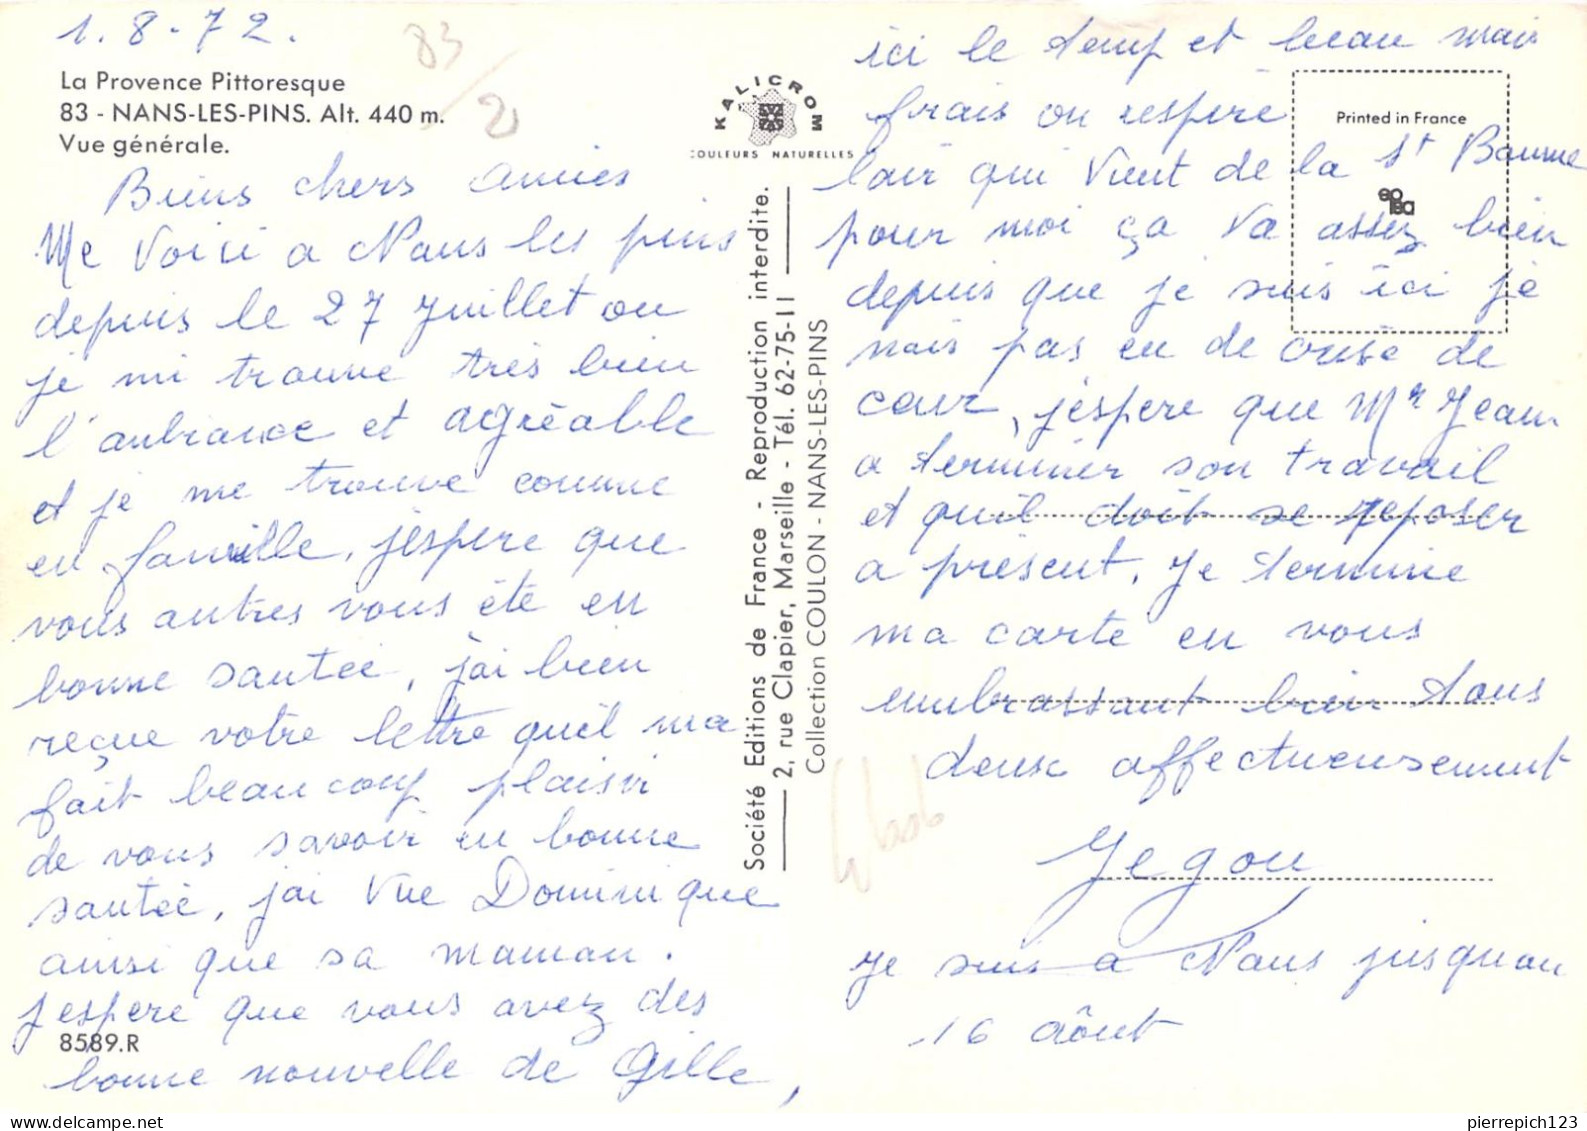 1.8-72.
83/2
La Provence Pittoresque
83 - NANS-LES-PINS. Alt. 440 m.
Vue générale.
Biens chers amies
Me Voici a Nans les pins
depuis le 27 juillet ou
je mi trouve très bien
l'anbiance et agréable
et je me trouve comme
en famille, jéspere que
vous autres vous éte en
bonne santée, j'ai bien
reçue votre lettre quil ma
fait beaucoup plaisir
de vous savoir en bonne
santée, j'ai Vue Dominique
ainsi que sa maman.
j'espere que vous avez des
bonne nouvelle de Gille,
8589.R
KALICROM
COULEURS NATURELLES
Société Editions de France - Reproduction interdite.
2, rue Clapier, Marseille - Tél. 62-75-11
Collection COULON - NANS-LES-PINS
Printed in France
ici le temp et beau mais
frais on respere
lair qui Vient de la St Baume
pour moi ça va assez bien
depuis que je suis ici je
nais pas eu de crise de
cœur, jéspere que Mr Jean
a terminér son travail
et quil doit se reposer
a présent, je termine
ma carte en vous
embrassant bien tous
deux affectueusement
Jegou
je suis a Nans jusquau
16 août
pierrepich123